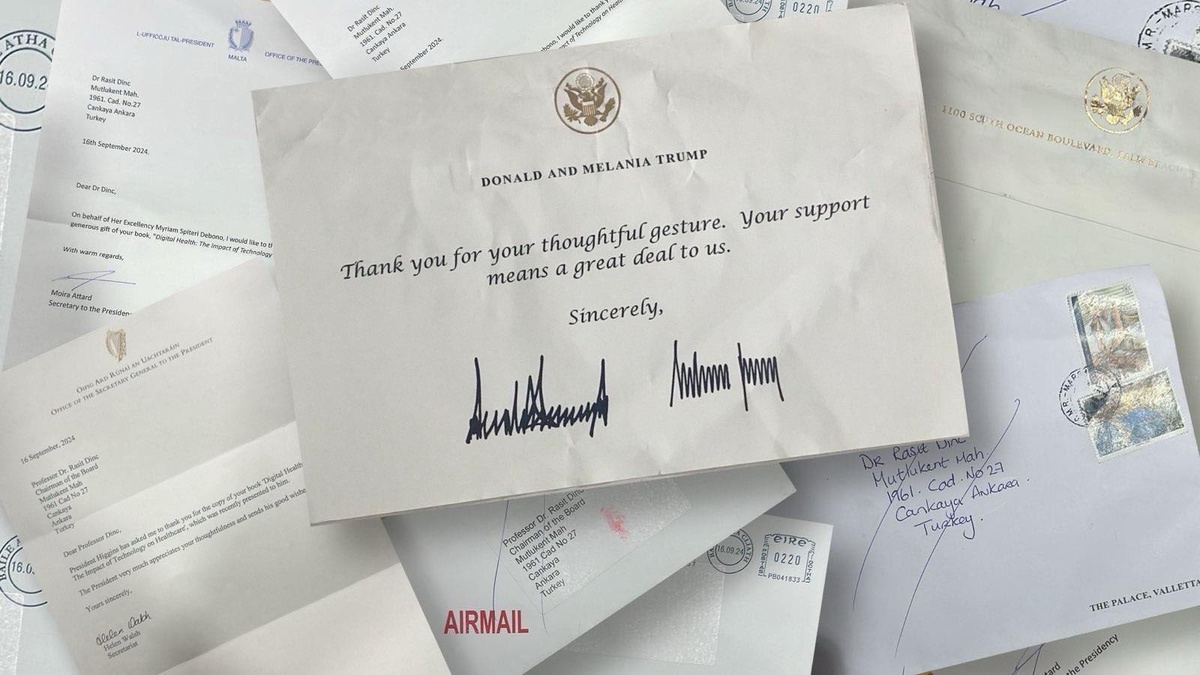 L-UFFIĊĊJU TAL-PRESIDENT
MALTA
OFFICE OF THE
Dr Rasit Dinc
Mutlukent Mah.
1961. Cad. No.27
Cankaya Ankara
Turkey
16th September 2024.
Dear Dr Dinc,
On behalf of Her Excellency Myriam Spiteri Debono, I would like to
generous gift of your book, "Digital Health: The Impact of Technology
With warm regards,
Moira Attard
Secretary to the
Dr Rasit Dinc
Mutlukent Mah.
1961. Cad. No.27
Cankaya Ankara
Turkey
September 2024.
would like to thank
of Technology on
16.09.2
0220
DONALD AND MELANIA TRUMP
Thank you for your thoughtful gesture. Your support
means a great deal to us.
Sincerely,
1100 SOUTH OCEAN BOULEVARD, PALM BEACH
OIFIG ARD RÚNAÍ AN UACHTARÁIN
OFFICE OF THE SECRETARY GENERAL TO THE PRESIDENT
16 September, 2024
Professor Dr. Rasit Dinc
Chairman of the Board
Mutlukent Mah
1961 Cad No 27
Cankaya
Ankara
Turkey
Dear Professor Dinc,
President Higgins has asked me to thank you for the copy of your book 'Digital Health
The Impact of Technology on Healthcare', which was recently presented to him.
The President very much appreciates your thoughtfulness and sends his good wishes
Yours sincerely,
Helen Walsh
Helen Walsh
Secretariat
Professor Dr. Rasit Dinc
Chairman of the Board
Mutlukent Mah
1961 Cad No 27
Cankaya
Ankara
Turkey
AIRMAIL
16.09.24
éIRe
0220
PB041833
Dr Rasit Dinc
Mutlukent Mah.
1961. Cad. No 27
Cankaya Ankara.
Turkey.
THE PALACE, VALLETTA
the Presidency